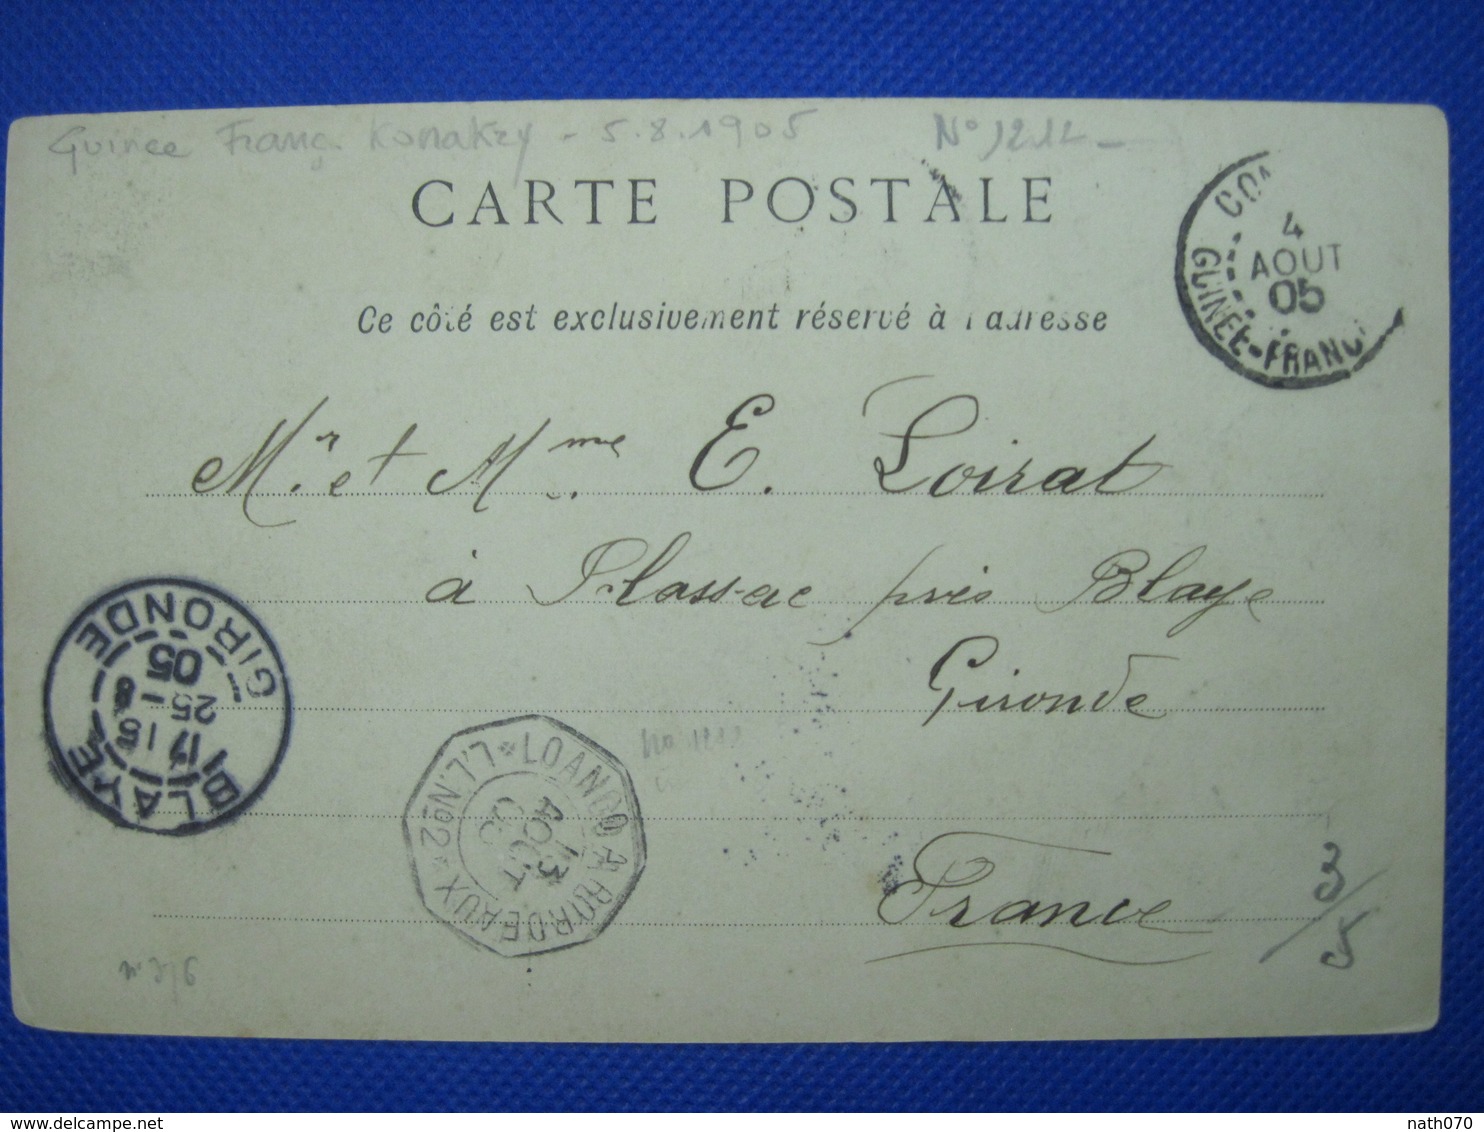 Guinee Franç. Konakry - 5.8.1905 N° 1212
CARTE POSTALE
Ce côté est exclusivement réservé à l'adresse
4
AOUT
05
GUINÉE-FRANC
Mr. et Mme. E. Loirat
à Plassac près Blaye
Gironde
France
BLAYE
17 15
25 - 8
05
GIRONDE
LOANGO A BORDEAUX
L.L. No2
13
AOUT
05
No 1212
3/5
www.delcampe.net
nath070